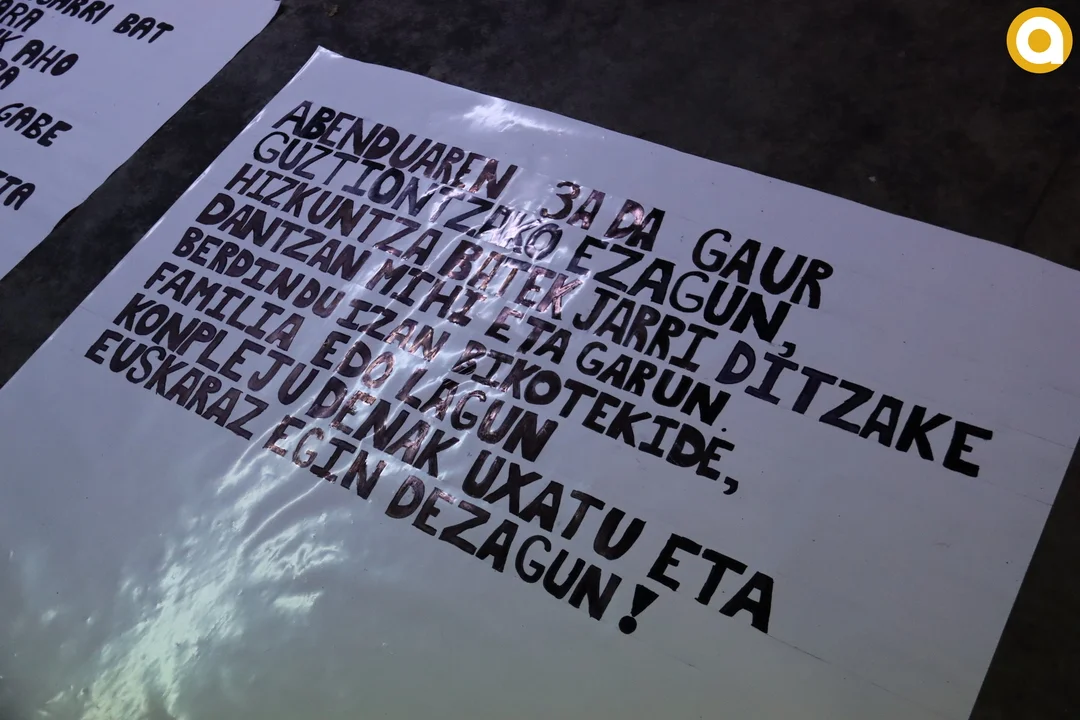 JARRI BAT
ARA
K AHO
PA
GABE
TA
ABENDUAREN 3A DA GAUR
GUZTIONTZAKO EZAGUN,
HIZKUNTZA BATEK JARRI DITZAKE
DANTZAN MIHI ETA GARUN.
BERDIN DU IZAN BIKOTEKIDE,
FAMILIA EDO LAGUN
KONPLEJU DENAK UXATU ETA
EUSKARAZ EGIN DEZAGUN!
a